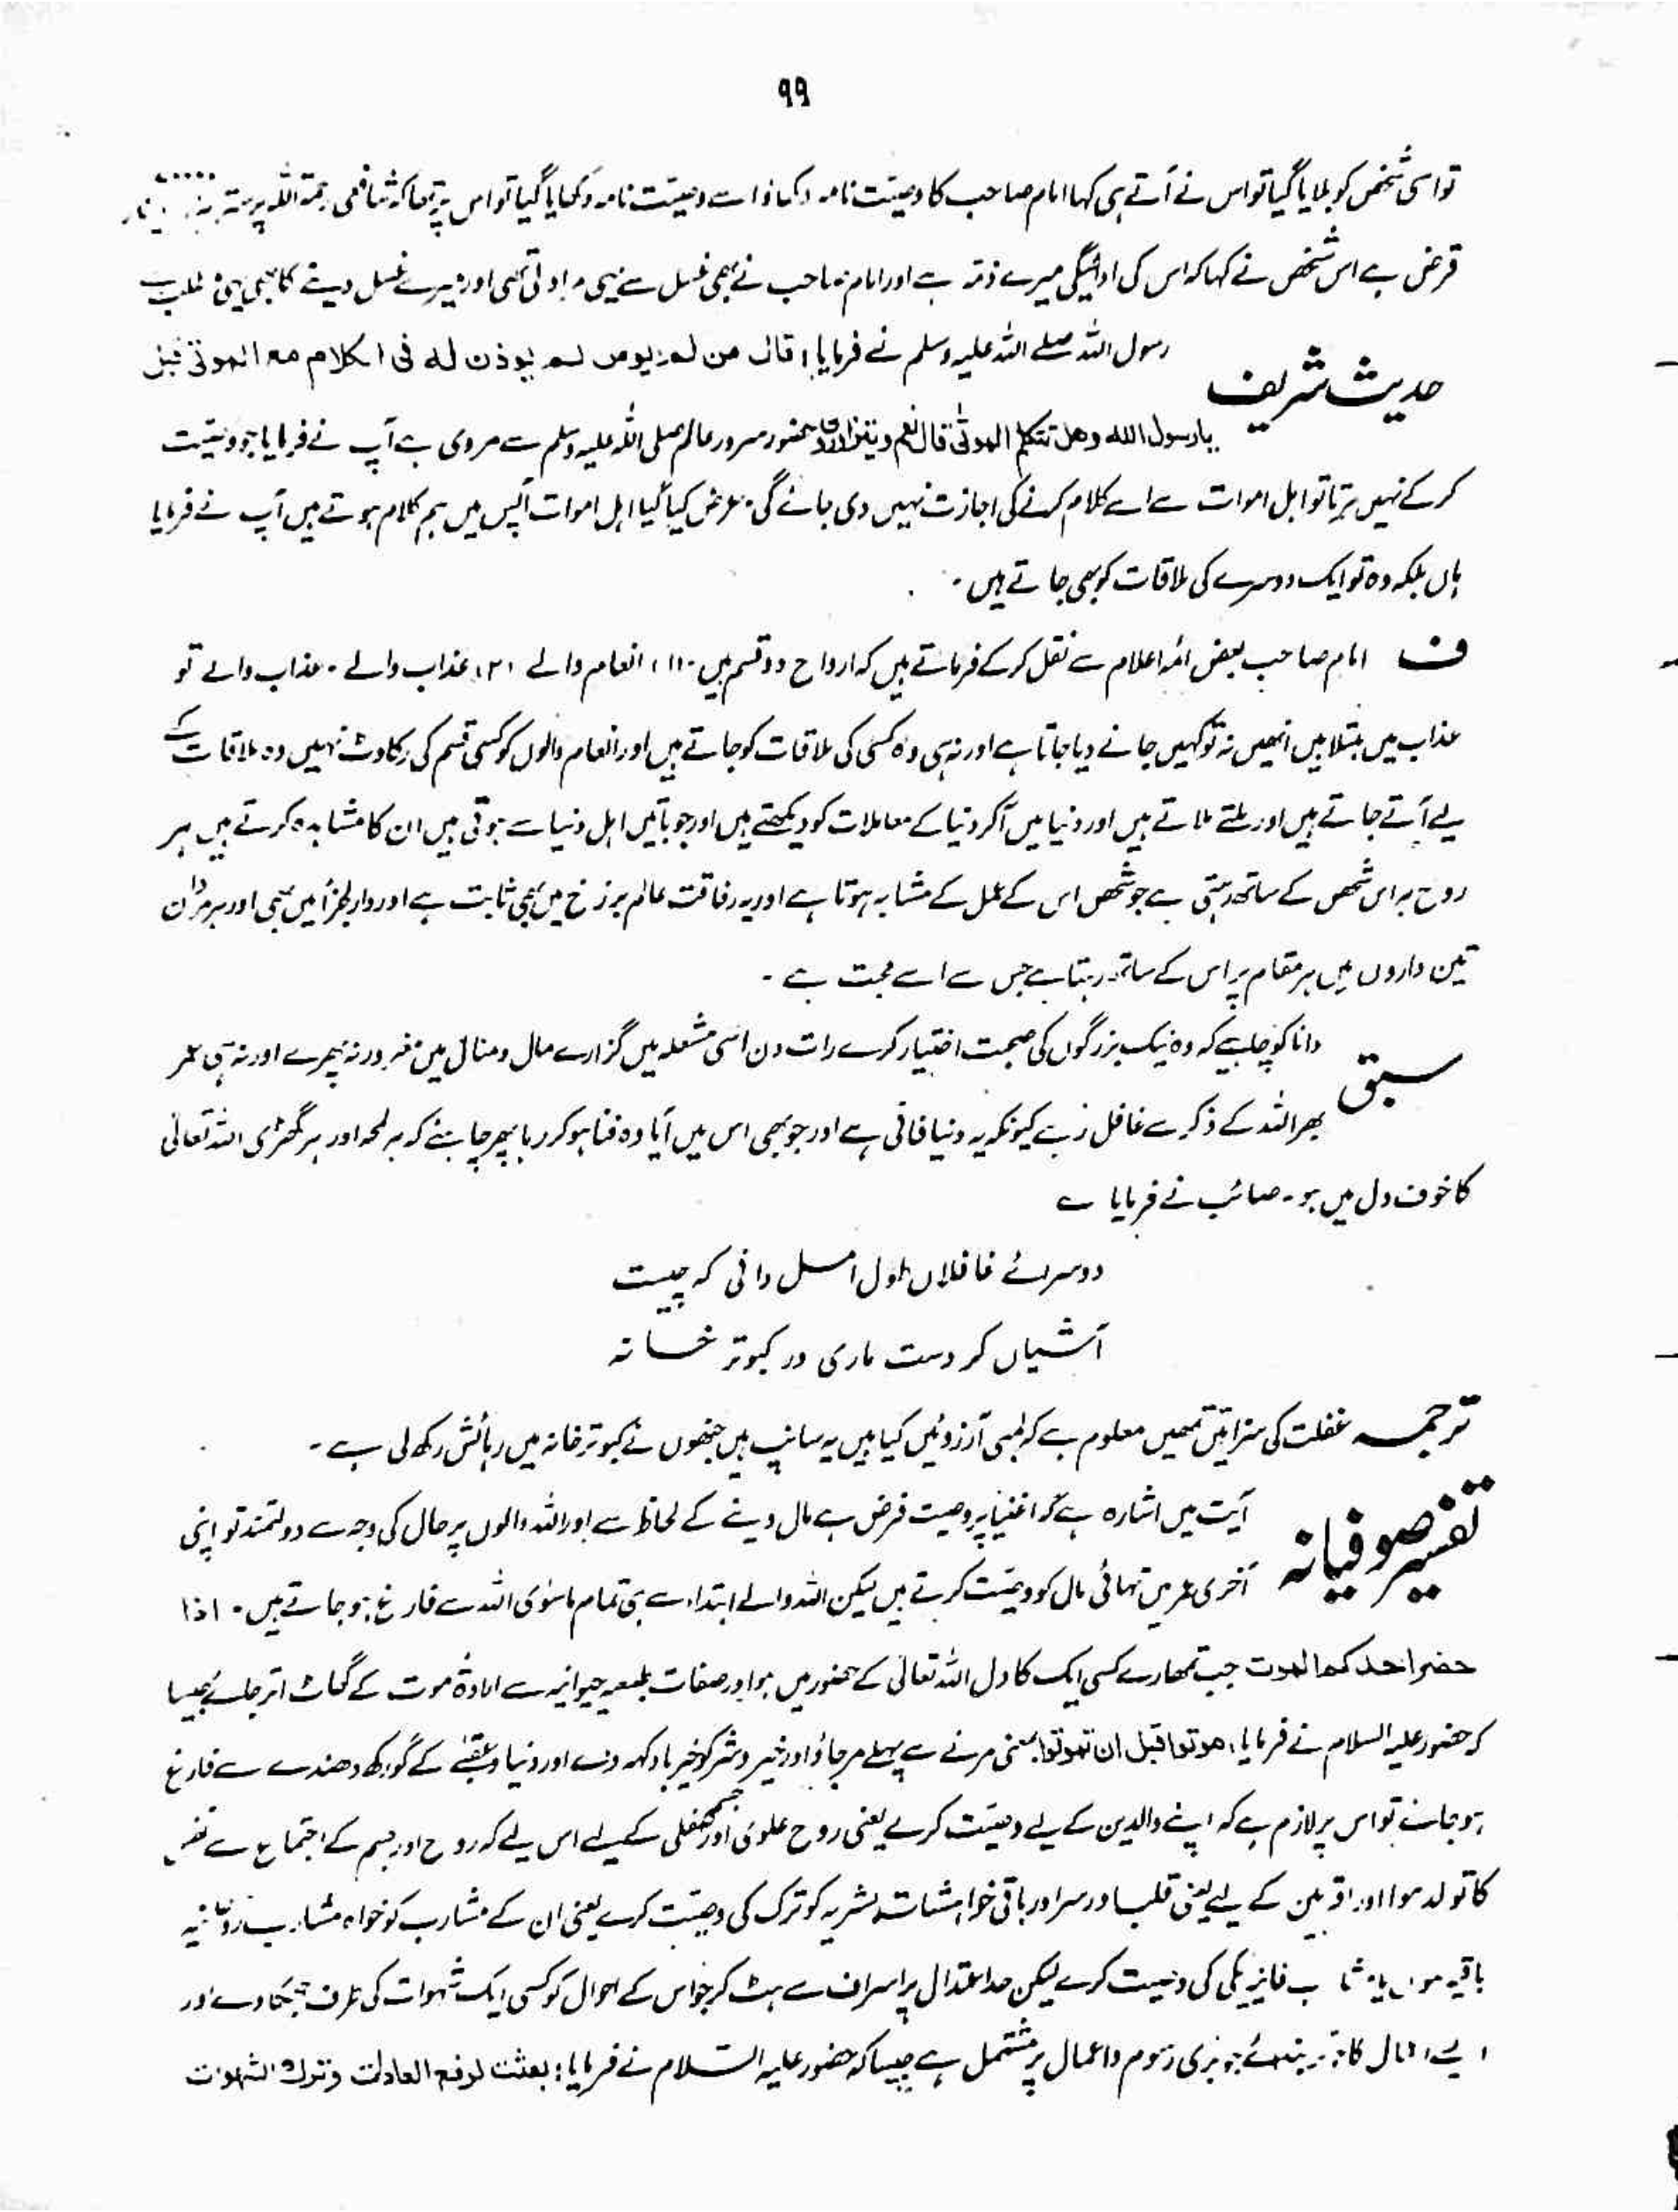 ۹۹
تو اسی شخص کو بلایا گیا تو اس نے آتے ہی کہا امام صاحب کا وصیّت نامہ دکھاؤ اسے وصیّت نامہ دکھایا گیا تو اس پر تھا کہ شافعی رحمۃ اللہ پر ستر ہزار
قرض ہے اس شخص نے کہا کہ اس کی ادائیگی میرے ذمّہ ہے اور امام صاحب نے بھی غسل سے یہی مراد لی تھی اور میرے غسل دینے کا بھی یہی مطلب ہے
حدیث شریف رسول اللہ صلے اللہ علیہ وسلم نے فرمایا؛ قال من لم یوص لم یوذن لہ فی الکلام مع الموتی قیل
یا رسول اللہ وھل تتکلم الموتٰی قال نعم ویتزاورون حضور سرور عالم صلی اللہ علیہ وسلم سے مروی ہے آپ نے فرمایا جو وصیّت
کر کے نہیں مرتا تو اہل اموات سے اسے کلام کرنے کی اجازت نہیں دی جائے گی۔ عرض کیا گیا اہل اموات آپس میں ہم کلام ہوتے ہیں آپ نے فرمایا
ہاں بلکہ وہ تو ایک دوسرے کی ملاقات کو بھی جاتے ہیں۔
ف امام صاحب بعض ائمہ اعلام سے نقل کر کے فرماتے ہیں کہ ارواح دو قسم ہیں۔ (۱) انعام والے (۲) عذاب والے۔ عذاب والے تو
عذاب میں مبتلا ہیں انھیں نہ تو کہیں جانے دیا جاتا ہے اور نہ ہی وہ کسی کی ملاقات کو جاتے ہیں اور انعام والوں کو کسی قسم کی رکاوٹ نہیں وہ ملاقات کے
لیے آتے جاتے ہیں اور ملتے ملاتے ہیں اور دنیا میں آ کر دنیا کے معاملات کو دیکھتے ہیں اور جو باتیں اہل دنیا سے ہوتی ہیں ان کا مشاہدہ کرتے ہیں ہر
روح ہر اس شخص کے ساتھ رہتی ہے جو شخص اس کے عمل کے مشابہ ہوتا ہے اور یہ رفاقت عالم برزخ میں بھی ثابت ہے اور دار الجزأ میں بھی اور ہر مرد ان
تین داروں میں ہر مقام پر اس کے ساتھ رہتا ہے جس سے اسے محبت ہے۔
سبق دانا کو چاہیے کہ وہ نیک بزرگوں کی صحبت اختیار کرے رات دن اسی مشغلہ میں گزارے مال و منال میں مغرور نہ پھرے اور نہ ہی عمر
بھر اللہ کے ذکر سے غافل رہے کیونکہ یہ دنیا فانی ہے اور جو بھی اس میں آیا وہ فنا ہو کر رہا پھر چاہئے کہ ہر لمحہ اور ہر گھڑی اللہ تعالٰی
کا خوف دل میں ہو۔ صائب نے فرمایا ے
دو سرائے غافلاں طول امل دانی کہ چیست
آشیاں کردست ماری در کبوتر خانہ
ترجمہ غفلت کی سزائیں تمھیں معلوم ہے کہ لمبی آرزوئیں کیا ہیں یہ سانپ ہیں جنھوں نے کبوتر خانہ میں رہائش رکھ لی ہے۔
تفسیر صوفیانہ آیت میں اشارہ ہے کہ اغنیا پر وصیت فرض ہے مال دینے کے لحاظ سے اور اللہ والوں پر حال کی وجہ سے دولتمند تو اپنی
آخری عمر میں تہائی مال کو وصیّت کرتے ہیں لیکن اللہ والے ابتداء سے ہی تمام ماسوٰی اللہ سے فارغ ہو جاتے ہیں۔ اذا
حضر احد کم الموت جب تمھارے کسی ایک کا دل اللہ تعالٰی کے حضور میں ہو اور صفات طبعیہ حیوانیہ سے ارادۃً موت کے گھاٹ اتر جائے جیسا
کہ حضور علیہ السلام نے فرمایا، موتوا قبل ان تموتوا بمعنی مرنے سے پہلے مر جاؤ اور خیر و شر کو خیر باد کہہ دے اور دنیا و عقبٰے کے گورکھ دھندے سے فارغ
ہو جائے تو اس پر لازم ہے کہ اپنے والدین کے لیے وصیّت کرے یعنی روح علوی اور جسم سفلی کے لیے اس لیے کہ روح اور جسم کے اجتماع سے نفس
کا تولد ہوا اور اقربین کے لیے یعنی قلب اور سر اور باقی خواہشات بشریہ کو ترک کی وصیّت کرے یعنی ان کے مشارب کو خواہ مشارب روحانیہ
باقیہ ہوں یا فانیہ کی وصیت کرے لیکن حد اعتدال پر اسراف سے ہٹ کر جو اس کے احوال کو کسی ایک شہوات کی طرف جھکا دے اور
جو بری رسوم و اعمال پر مشتمل ہے جیسا کہ حضور علیہ السّلام نے فرمایا؛ بعثت لرفع العادات وترک الشھوات